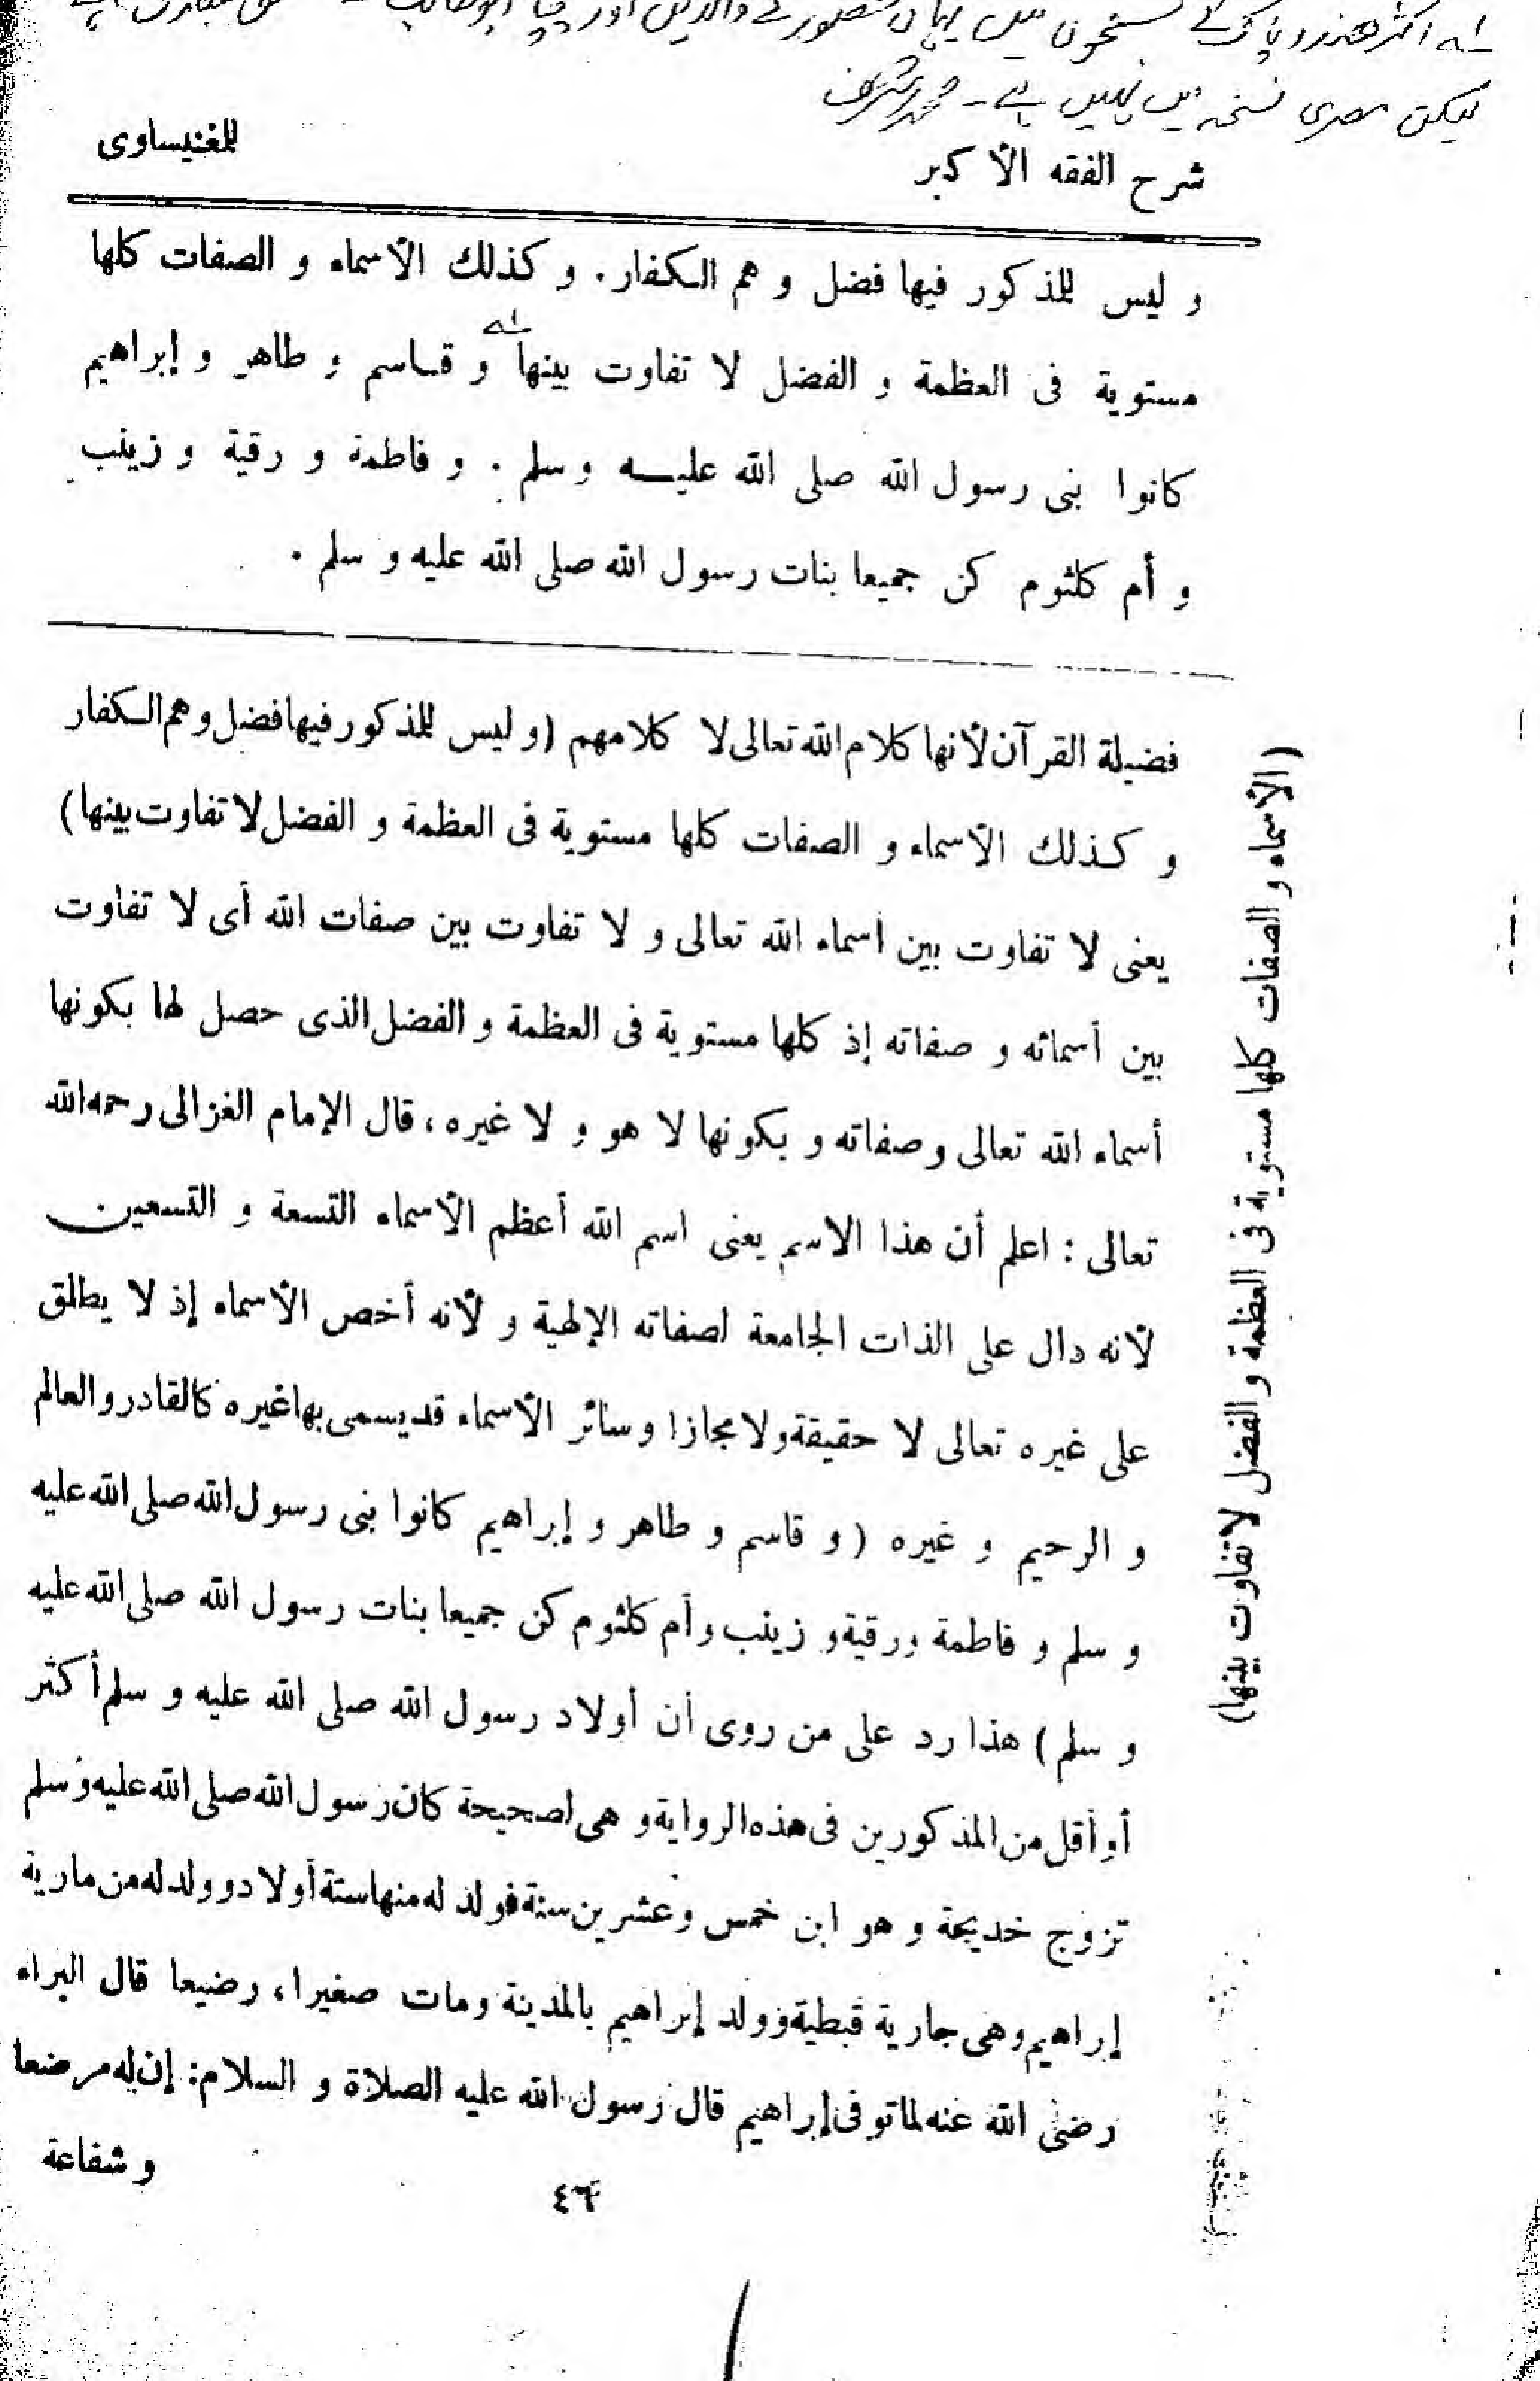 ؂ اکثر ہندو پاک کے نسخوں میں یہاں حضور کے والدین اور چچا ابوطالب کے
لیکن مصری نسخہ میں نہیں ہے - محمد اشرف
شرح الفقه الأكبر
للمغنيساوى
و ليس للمذكور فيها فضل و هم الكفار . و كذلك الأسماء و الصفات كلها
مستوية فى العظمة و الفضل لا تفاوت بينها و قاسم و طاهر و إبراهيم
كانوا بنى رسول الله صلى الله عليه و سلم . و فاطمة و رقية و زينب
و أم كلثوم كن جميعا بنات رسول الله صلى الله عليه و سلم .
فضيلة القرآن لأنها كلام الله تعالى لا كلامهم (و ليس للمذكور فيها فضل و هم الكفار
و كذلك الأسماء و الصفات كلها مستوية فى العظمة و الفضل لا تفاوت بينها)
يعنى لا تفاوت بين اسماء الله تعالى و لا تفاوت بين صفات الله أى لا تفاوت
بين أسمائه و صفاته إذ كلها مستوية فى العظمة و الفضل الذى حصل لها بكونها
أسماء الله تعالى و صفاته و بكونها لا هو و لا غيره ، قال الإمام الغزالى رحمه الله
تعالى : اعلم أن هذا الاسم يعنى اسم الله أعظم الأسماء التسعة و التسعين
لأنه دال على الذات الجامعة لصفاته الإلهية و لأنه أخص الأسماء إذ لا يطلق
على غيره تعالى لا حقيقة و لا مجازا و سائر الأسماء قد يسمى بها غيره كالقادر و العالم
و الرحيم و غيره (و قاسم و طاهر و إبراهيم كانوا بنى رسول الله صلى الله عليه
و سلم و فاطمة و رقية و زينب و أم كلثوم كن جميعا بنات رسول الله صلى الله عليه
و سلم) هذا رد على من روى أن أولاد رسول الله صلى الله عليه و سلم أكثر
أو أقل من المذكورين فى هذه الرواية و هى لصحيحة كان رسول الله صلى الله عليه و سلم
تزوج خديجة و هو ابن خمس و عشرين سنة فولد له منها ستة أولاد و ولد له من مارية
إبراهيم و هى جارية قبطية و ولد إبراهيم بالمدينة و مات صغيرا ، رضيعا قال البراء
رضى الله عنه لما توفى إبراهيم قال رسول الله عليه الصلاة و السلام : إن له مرضعا
و شفاعة
٤٦
(الأسماء و الصفات كلها مستوية فى العظمة و الفضل لا تفاوت بينها)